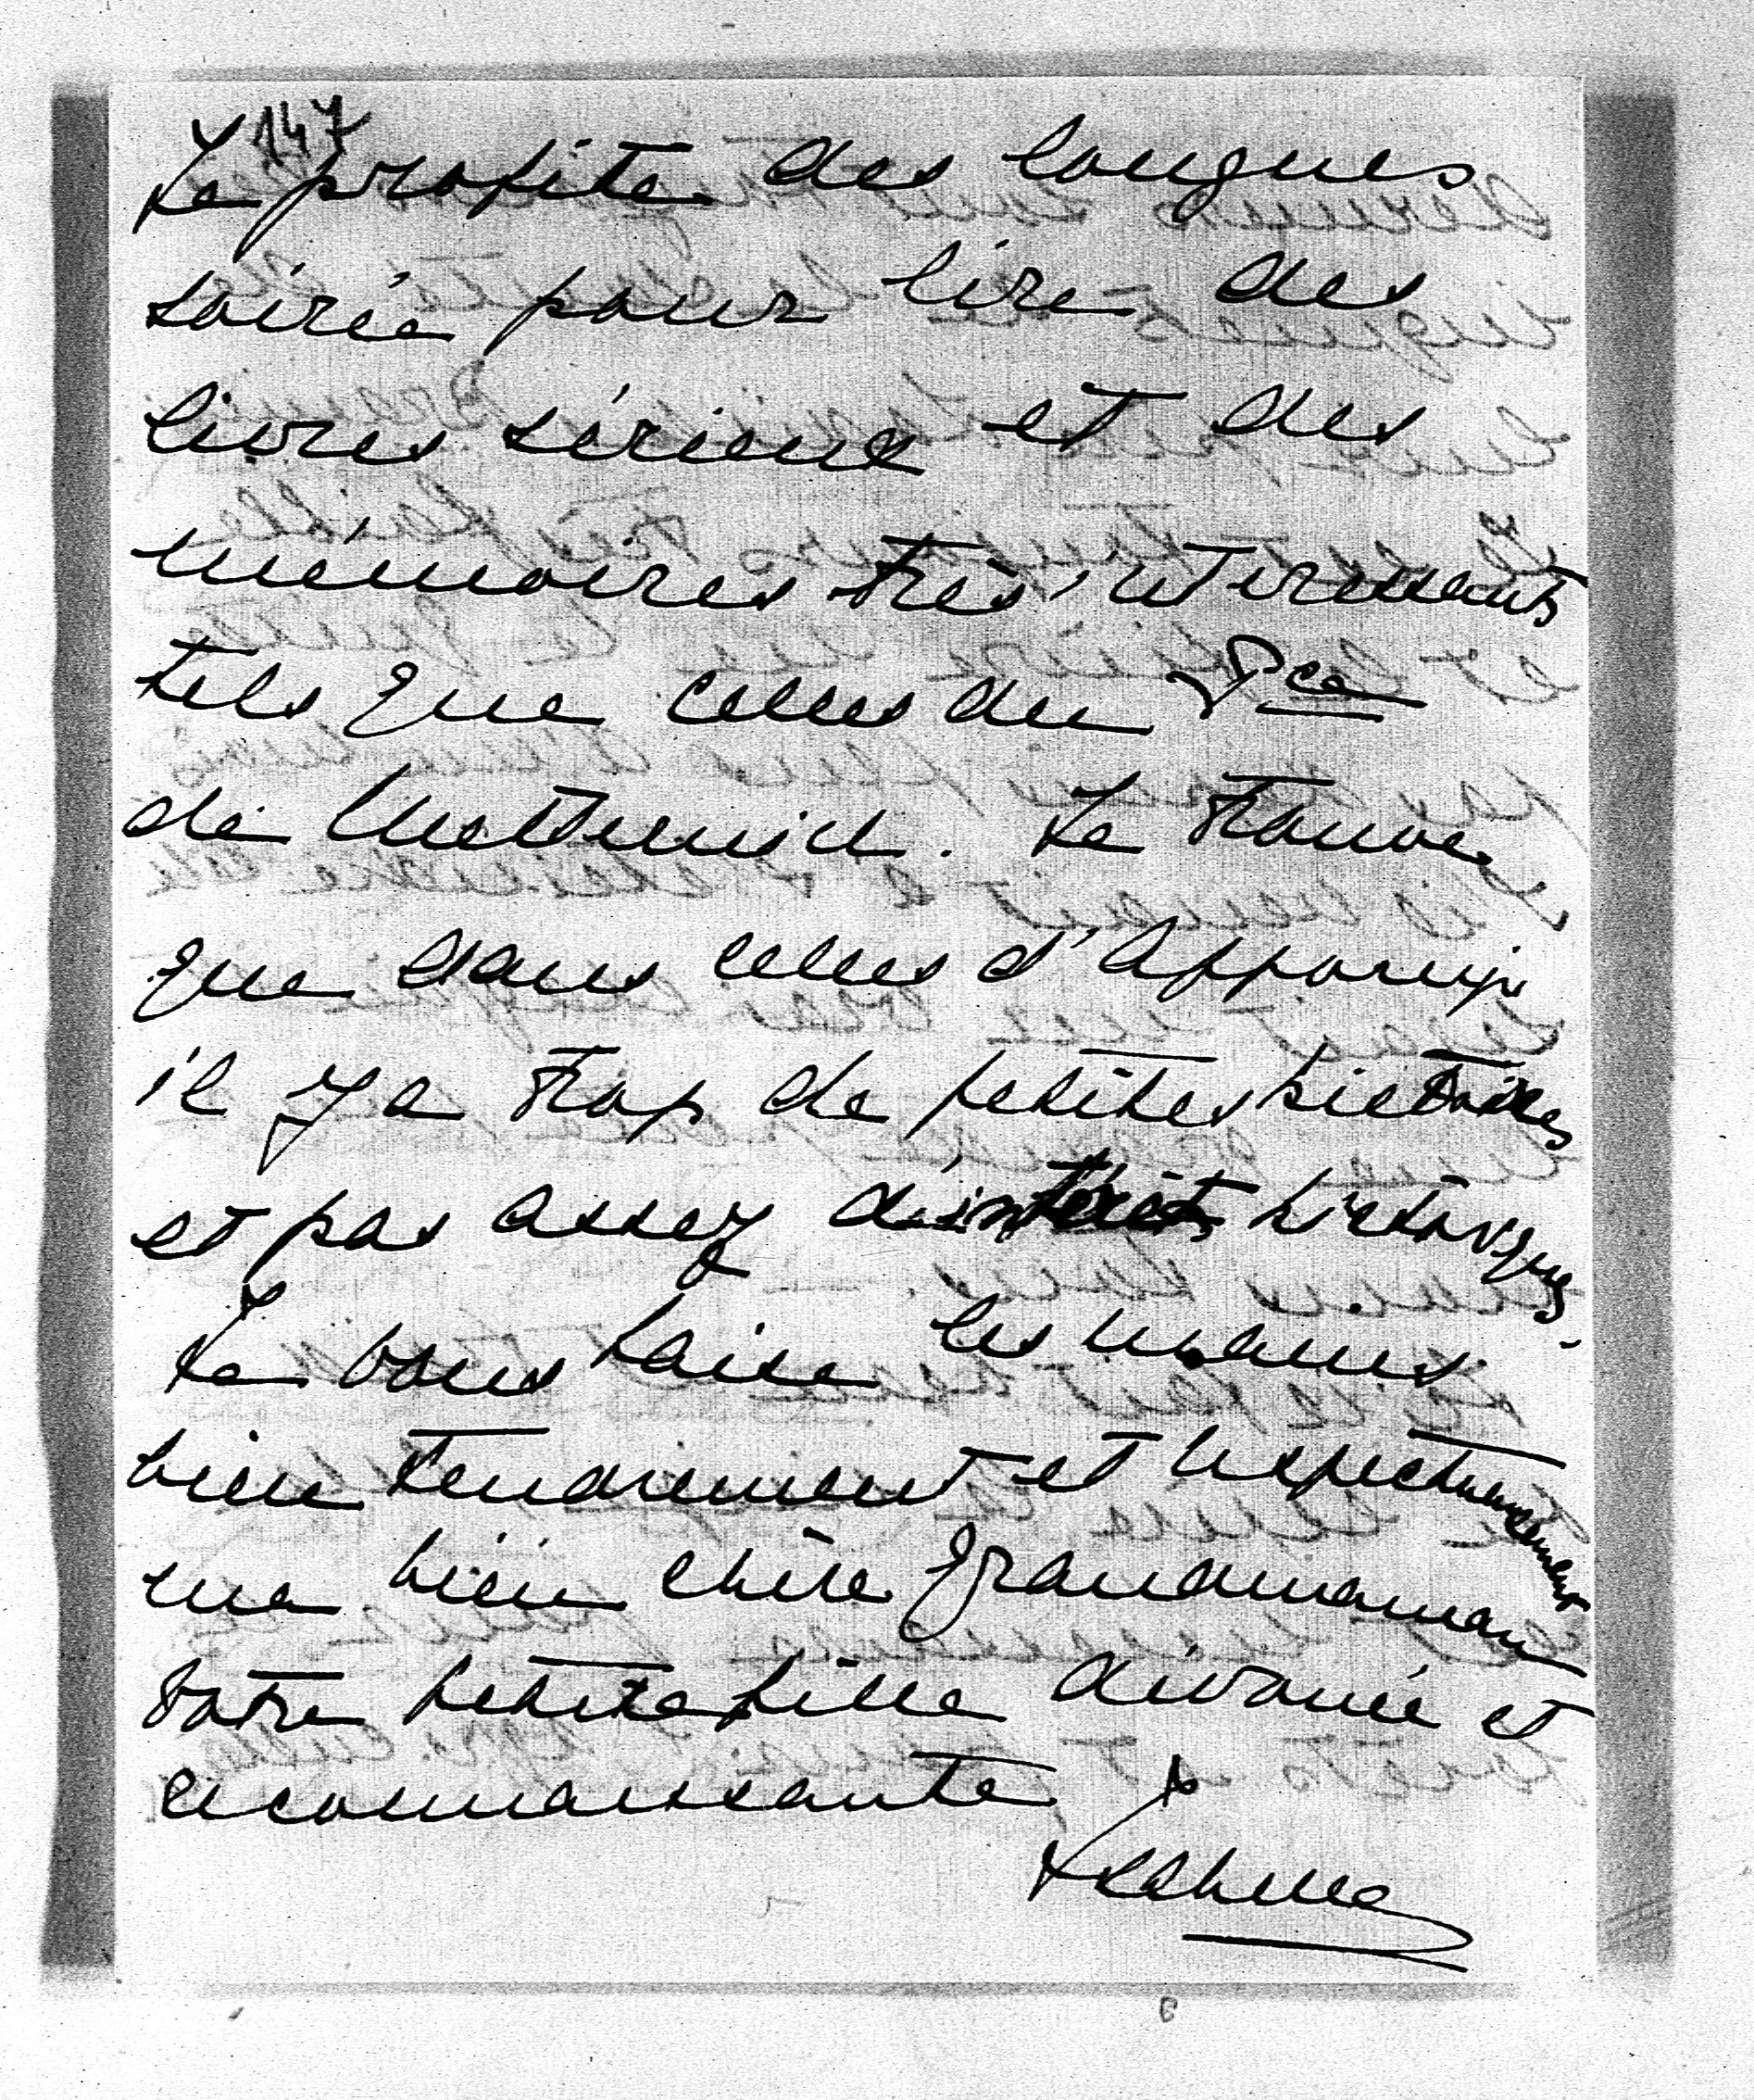 147
Je profite des longues
soirée pour lire des
livres sérieux et des
mémoires très interessants
tels que celles du Pce
de Metternich. Je trouve
que dans celles d'Apponyi
il y a trop de petites histoires
et pas assez d'intérêts historiques.
Je vous baise les mains
bien tendrement et respectueusement
ma bien chère Grandmaman
votre petite fille dévouée et
reconnaissante
Isabelle